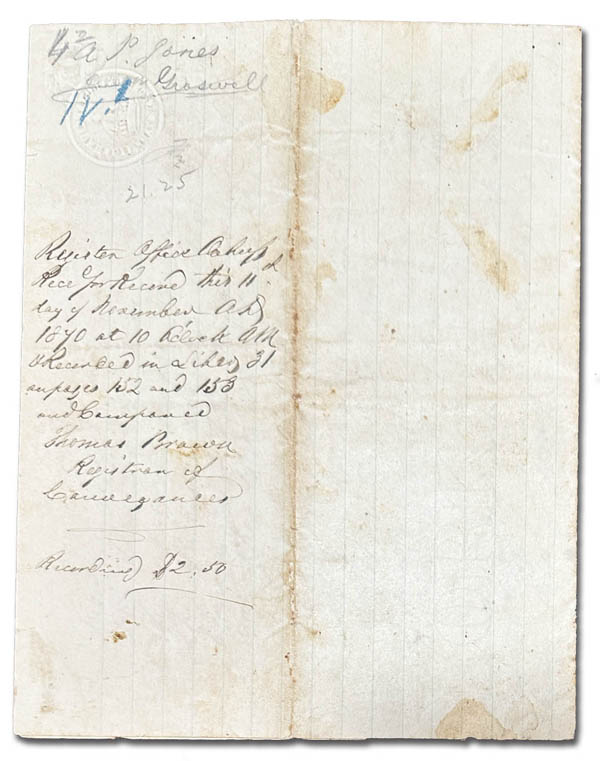 A. P. Jones
Groswell
21.25
Register Office Oahu
Recd for Record this 11
day of November A.D.
1870 at 10 O'clock AM
& Recorded in Liber 31
on pages 152 and 153
and Compared
Thomas Brown
Registrar of
Conveyances
Recording $2.50